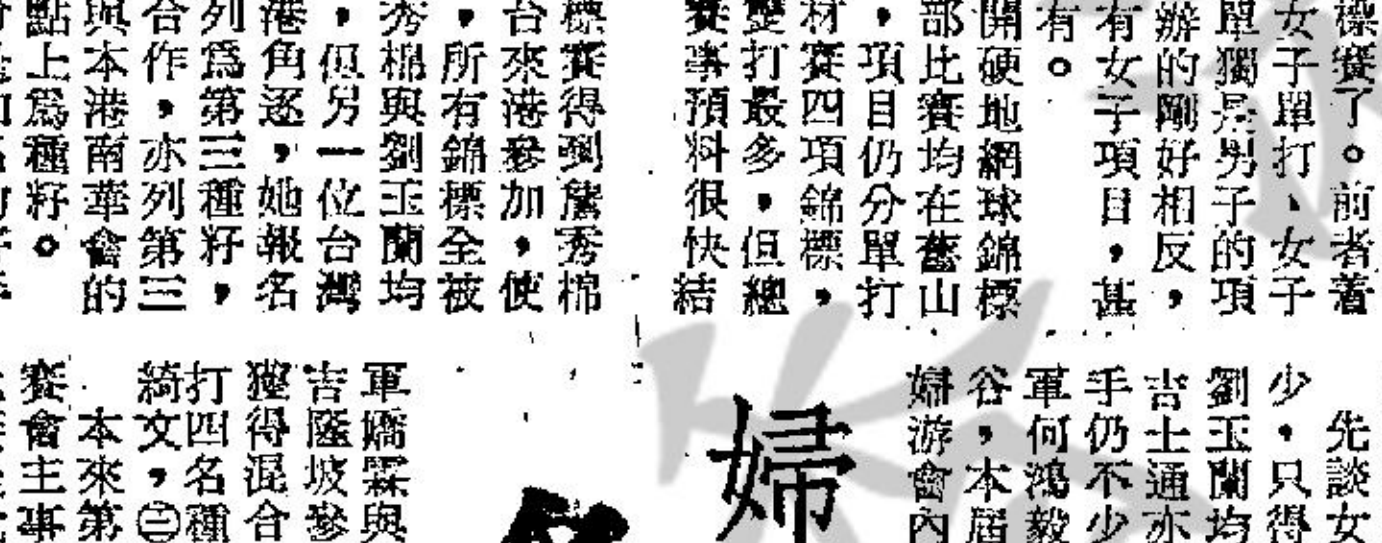 標賽了。前者着
女子單打、女子
單獨是男子的項
辦的剛好相反，
有女子項目，甚
有。
開硬地網球錦標
部比賽均在舊山
，項目仍分單打
材賽四項錦標，
雙打最多，但總
賽事預料很快結
標賽得到詹秀棉
台來港參加，使
，所有錦標全被
秀棉與劉玉蘭均
，但另一位台灣
港角逐，她報名
列爲第三種籽，
合作，亦列第三
與本港南華會的
點上爲種籽。
先談女
少，只得
劉玉蘭均
吉士通亦
手仍不少
軍何鴻毅
谷，本屆
婦游會內
婦
軍嬌霖與
吉隆坡參
獲得混合
打四名種
綺文，㊂
本來第
賽會主事